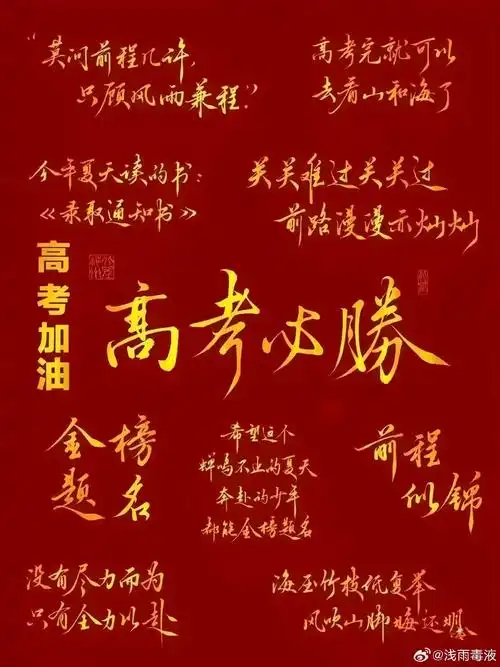 “莫问前程几许，
只顾风雨兼程。”
高考完就可以
去看山和海了
今年夏天读的书：
《录取通知书》
关关难过关关过
前路漫漫亦灿灿
高考加油
高考必勝
金榜
题名
希望这个
蝉鸣不止的夏天
奔赴的少年
都能金榜题名
前程
似锦
没有尽力而为
只有全力以赴
海压竹枝低复举
风吹山脚晦还明
@浅雨毒液